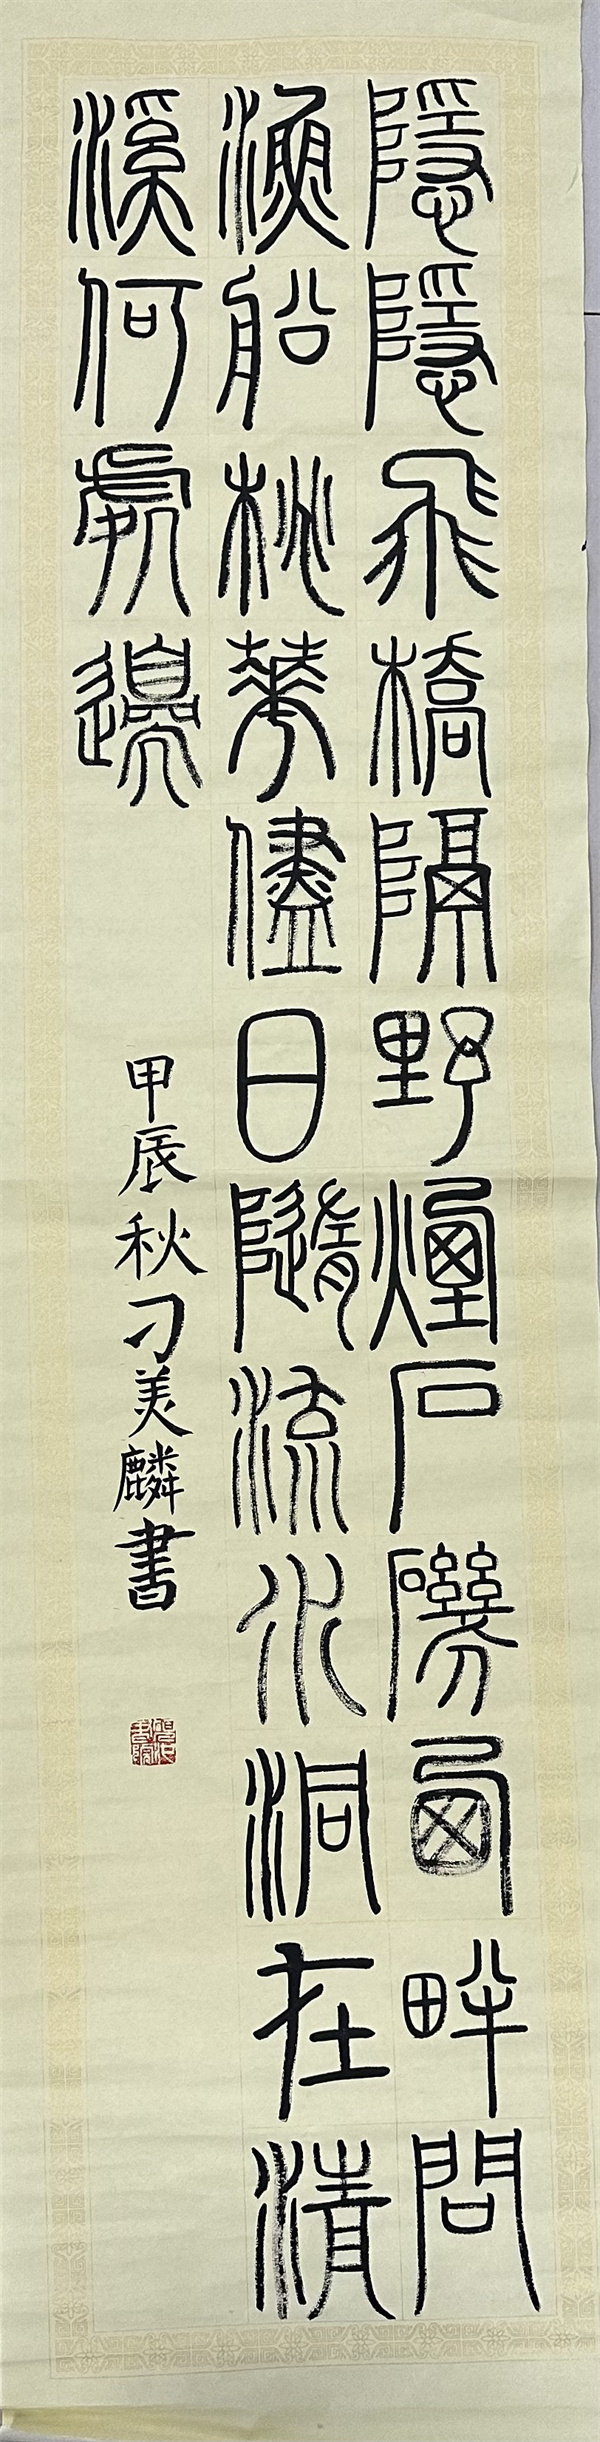 隱隱飛橋隔野煙石磯西畔問
漁船桃華儘日隨流水洞在清
溪何處邊
甲辰秋刁美麟書